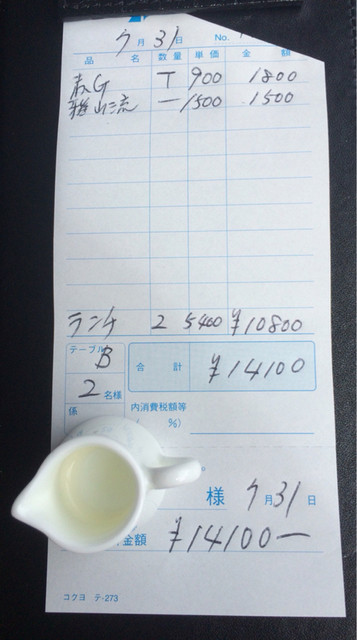 7月31日 No.
品名 数量 単価 金額
赤G T 900 1800
雅山流 一 1500 1500
ランチ 2 5400 ¥10800
テーブル B
合計 ¥14100
2名様
係 内消費税額等
( %)
様 7月31日
金額 ¥14100ー
コクヨ テ-273